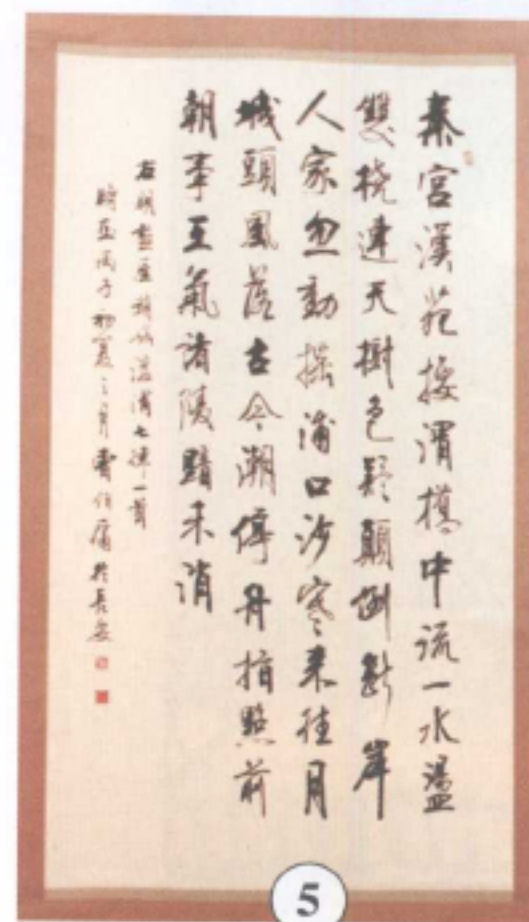 秦宮漢苑接渭橋中流一水盪
雙橈連天樹色疑顛倒斷岸
人家忽動搖浦口沙寒來往月
城頭風落古今潮停舟指點前
朝事王氣諸陵黯未消
右明盩厔趙 七律一首
時在丙子初夏之月費 於長安
5